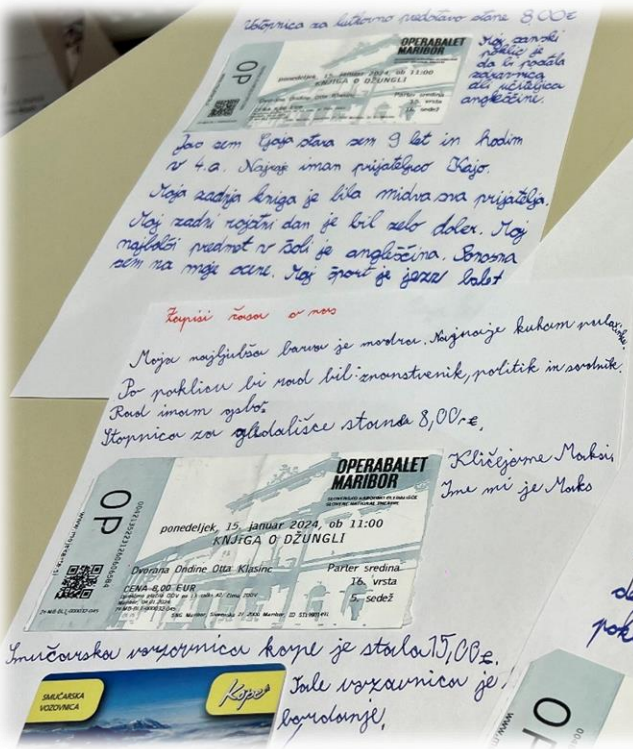 Vstopnica za lutkovno predstavo stane 8,00€
OPERABALET
MARIBOR
OP
ponedeljek, 15. januar 2024, ob 11:00
KNJiGA O DŽUNGLI
Dvorana Ondine Otta Klasinc
Parter sredina
vrsta
sedež
Moj sanski
poklic je
da bi postala
zdravnica
ali učiteljica
angleščine.
Jaz sem Gaja stara sem 9 let in hodim
v 4.a. Najraje iman prijateljico Kajo.
Moja zadnja kniga je bila midva sva prijatelja.
Moj zadni rojstni dan je bil zelo dober. Moj
najbolši predmet v šoli je angleščina. Ponosna
sem na moje ocene. Moj šport je jazz balet
Zapisi časa o nas
Moja najljubša barva je modra. Najraje kuham
Po poklicu bi rad bil: znanstvenik, politik in sodnik.
Rad imam
Stopnica za gledališce stane 8,00€.
OPERABALET
MARIBOR
SLOVENSKO NARODNO GLEDALIŠČE
SLOVENE NATIONAL THEATRE
OP
ponedeljek, 15. januar 2024, ob 11:00
KNJiGA O DŽUNGLI
Dvorana Ondine Otta Klasinc
Parter sredina
16. vrsta
5. sedež
CENA 8,00 EUR
Kličejo me Maksi,
Ime mi je Maks
Smučarska vozovnica kope je stala 15,00€.
SMUČARSKA
VOZOVNICA
Kope
Tale vozavnica je
OP